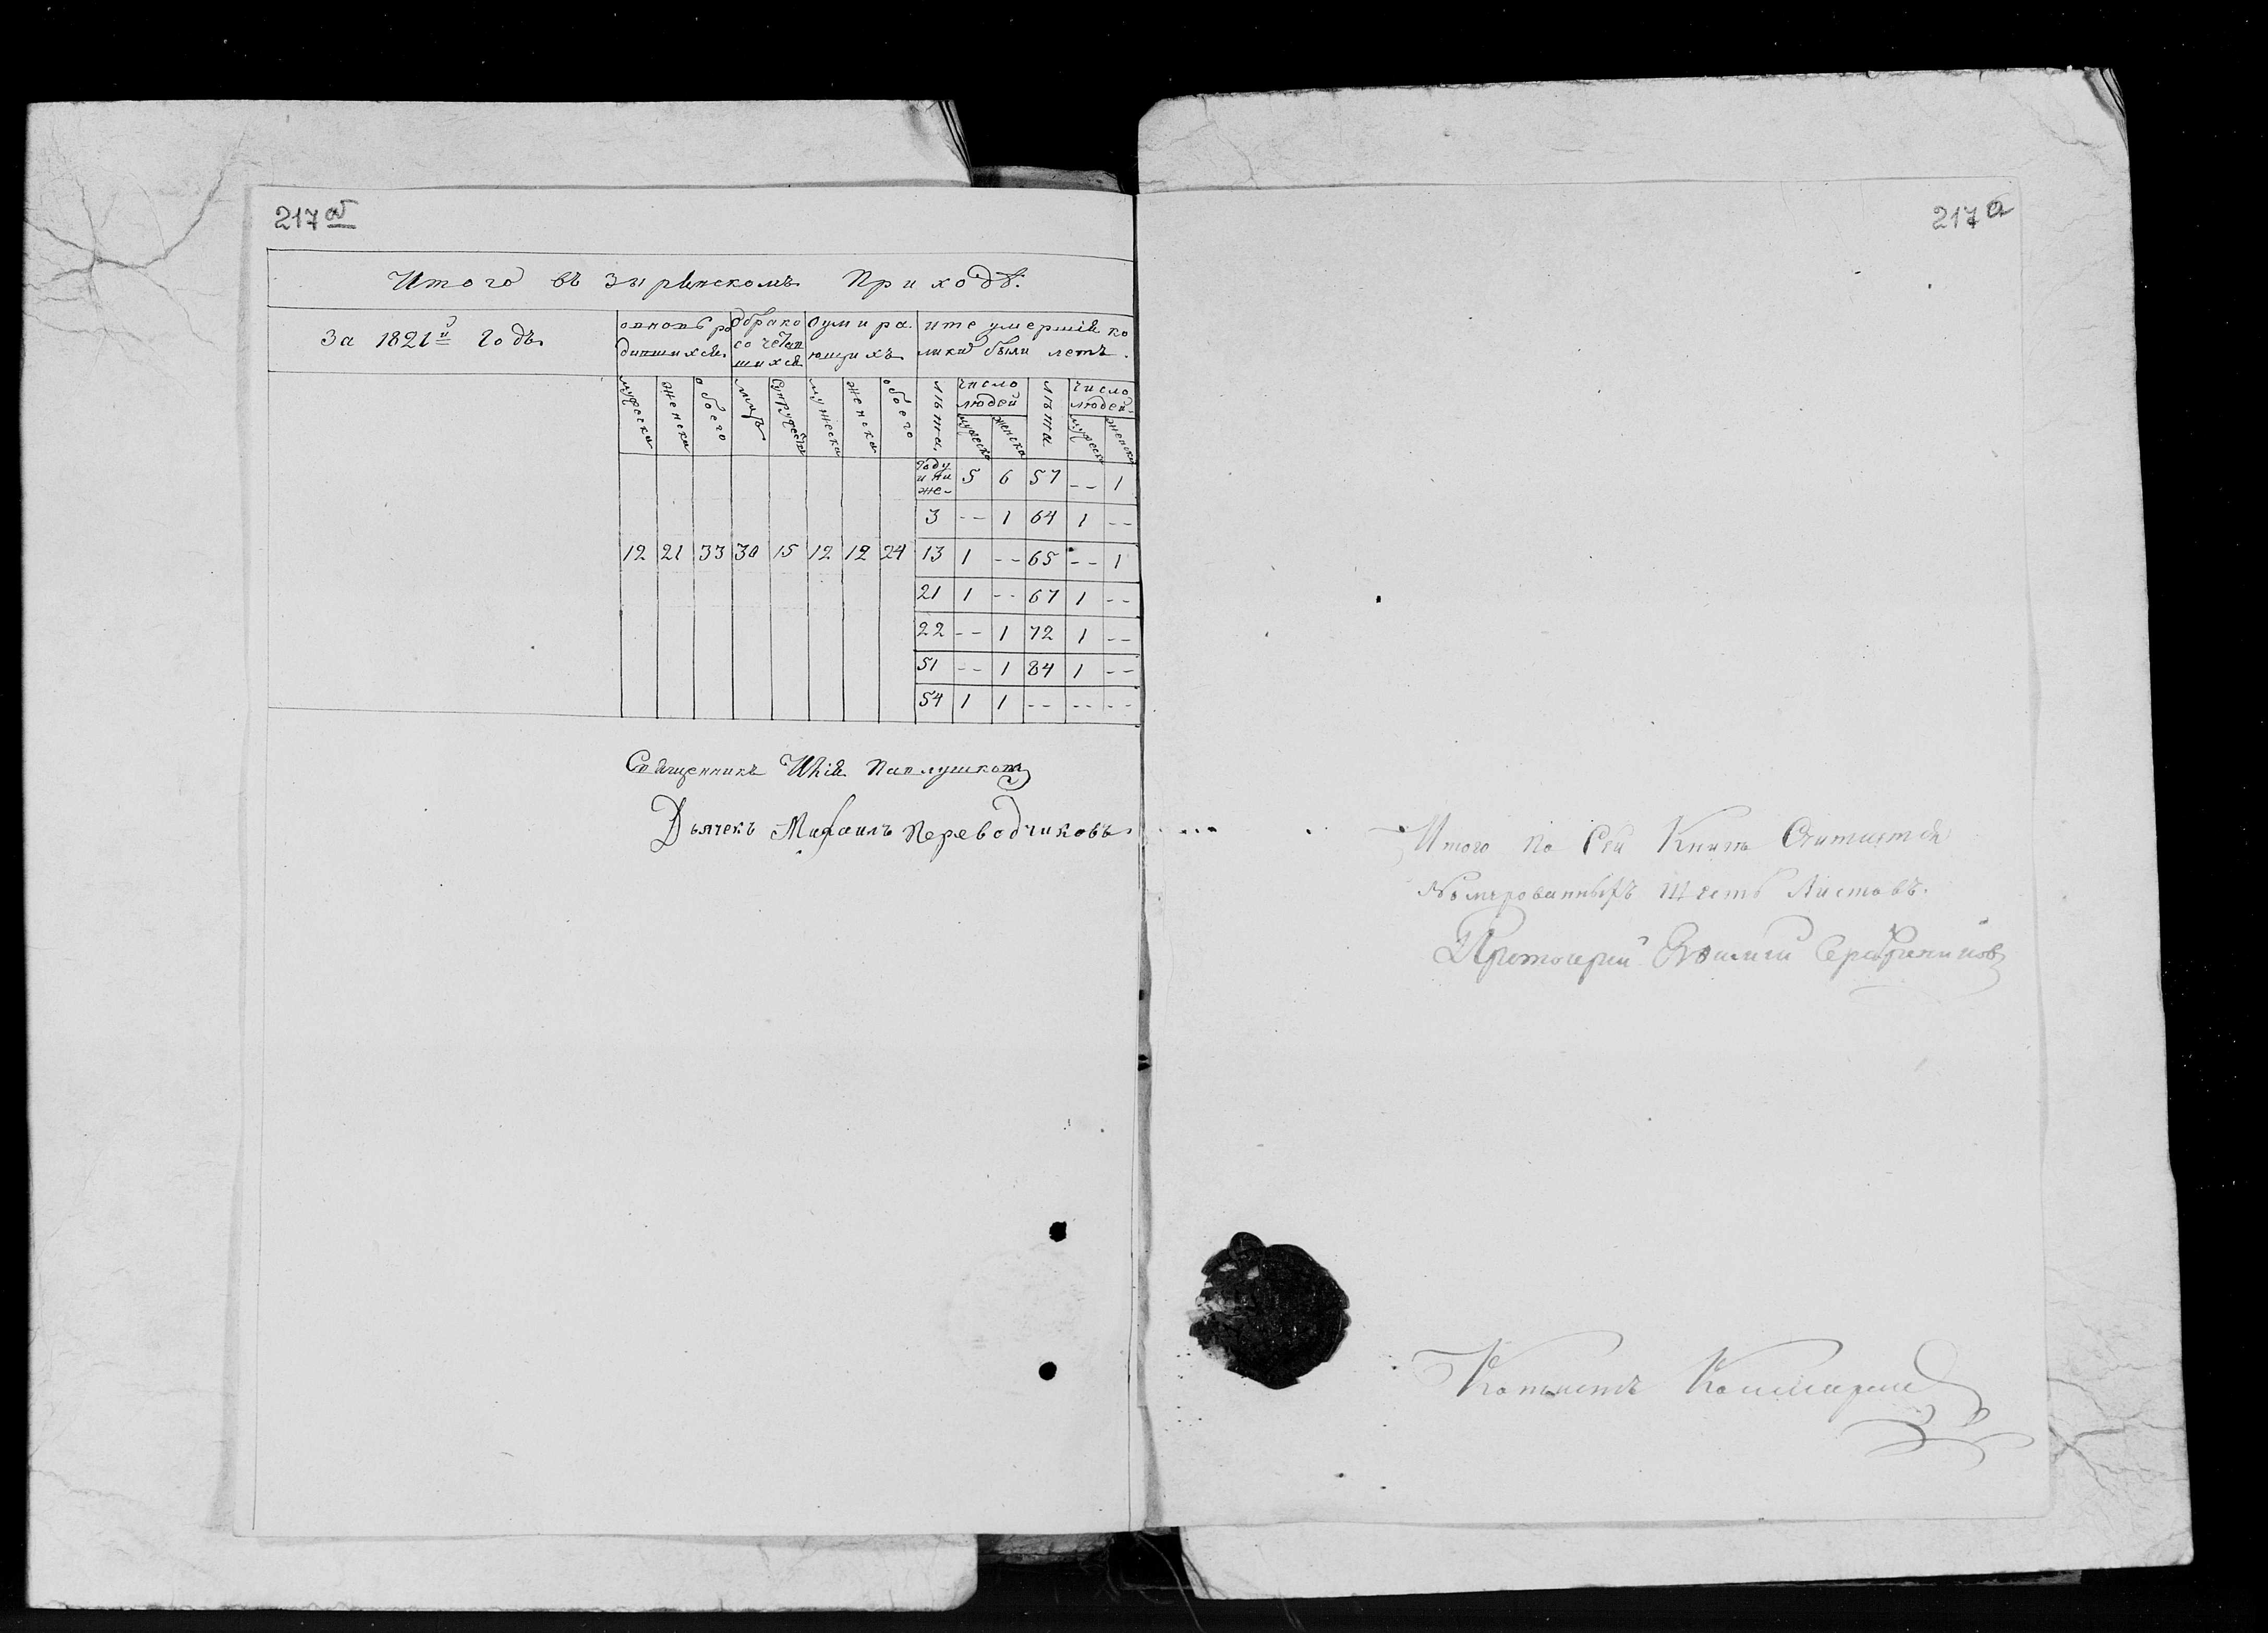 217 об
Итого въ Зырѣнскомъ Приходѣ.
За 1821й Годъ
о вновь ро
дившихся
о брако
сочетав
шихся
о умира
ющихъ
и те умершия ко
лики были летъ.
мужеска
женска
обоего
лицъ
супружествъ
мужеска
женска
обоего
лѣта
число
людей
мужеска
женска
лѣта
число
людей
мужеска
женска
Году
и ни
же-
5 6 57 -- 1
3 -- 1 64 1 --
12 21 33 30 15 12 12 24 13 1 -- 65 -- 1
21 1 -- 67 1 --
22 -- 1 72 1 --
51 -- 1 84 1 --
54 1 1 -- -- --
Священникъ Павлушковъ
Дьячекъ Михаилъ Переводчиковъ
217 а
Итого По Сей Книгѣ Считается
Номерованныхъ Шесть Листовъ.
Протоиерей Серебрениковъ